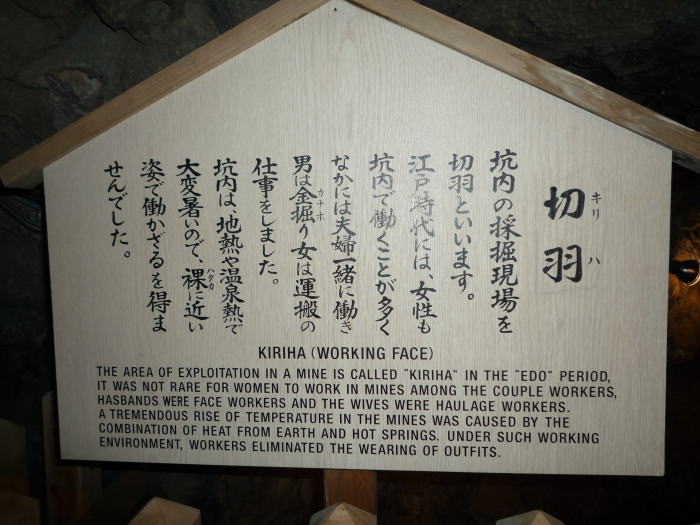 切羽
キリハ
坑内の採掘現場を
切羽といいます。
江戸時代には、女性も
坑内で働くことが多く
なかには夫婦一緒に働き
男は金掘り女は運搬の
カナホ
仕事をしました。
坑内は、地熱や温泉熱で
大変暑いので、裸に近い
ハタカ
姿で働かざるを得ま
せんでした。
KIRIHA (WORKING FACE)
THE AREA OF EXPLOITATION IN A MINE IS CALLED "KIRIHA" IN THE "EDO" PERIOD,
IT WAS NOT RARE FOR WOMEN TO WORK IN MINES AMONG THE COUPLE WORKERS,
HASBANDS WERE FACE WORKERS AND THE WIVES WERE HAULAGE WORKERS.
A TREMENDOUS RISE OF TEMPERATURE IN THE MINES WAS CAUSED BY THE
COMBINATION OF HEAT FROM EARTH AND HOT SPRINGS. UNDER SUCH WORKING
ENVIRONMENT, WORKERS ELIMINATED THE WEARING OF OUTFITS.